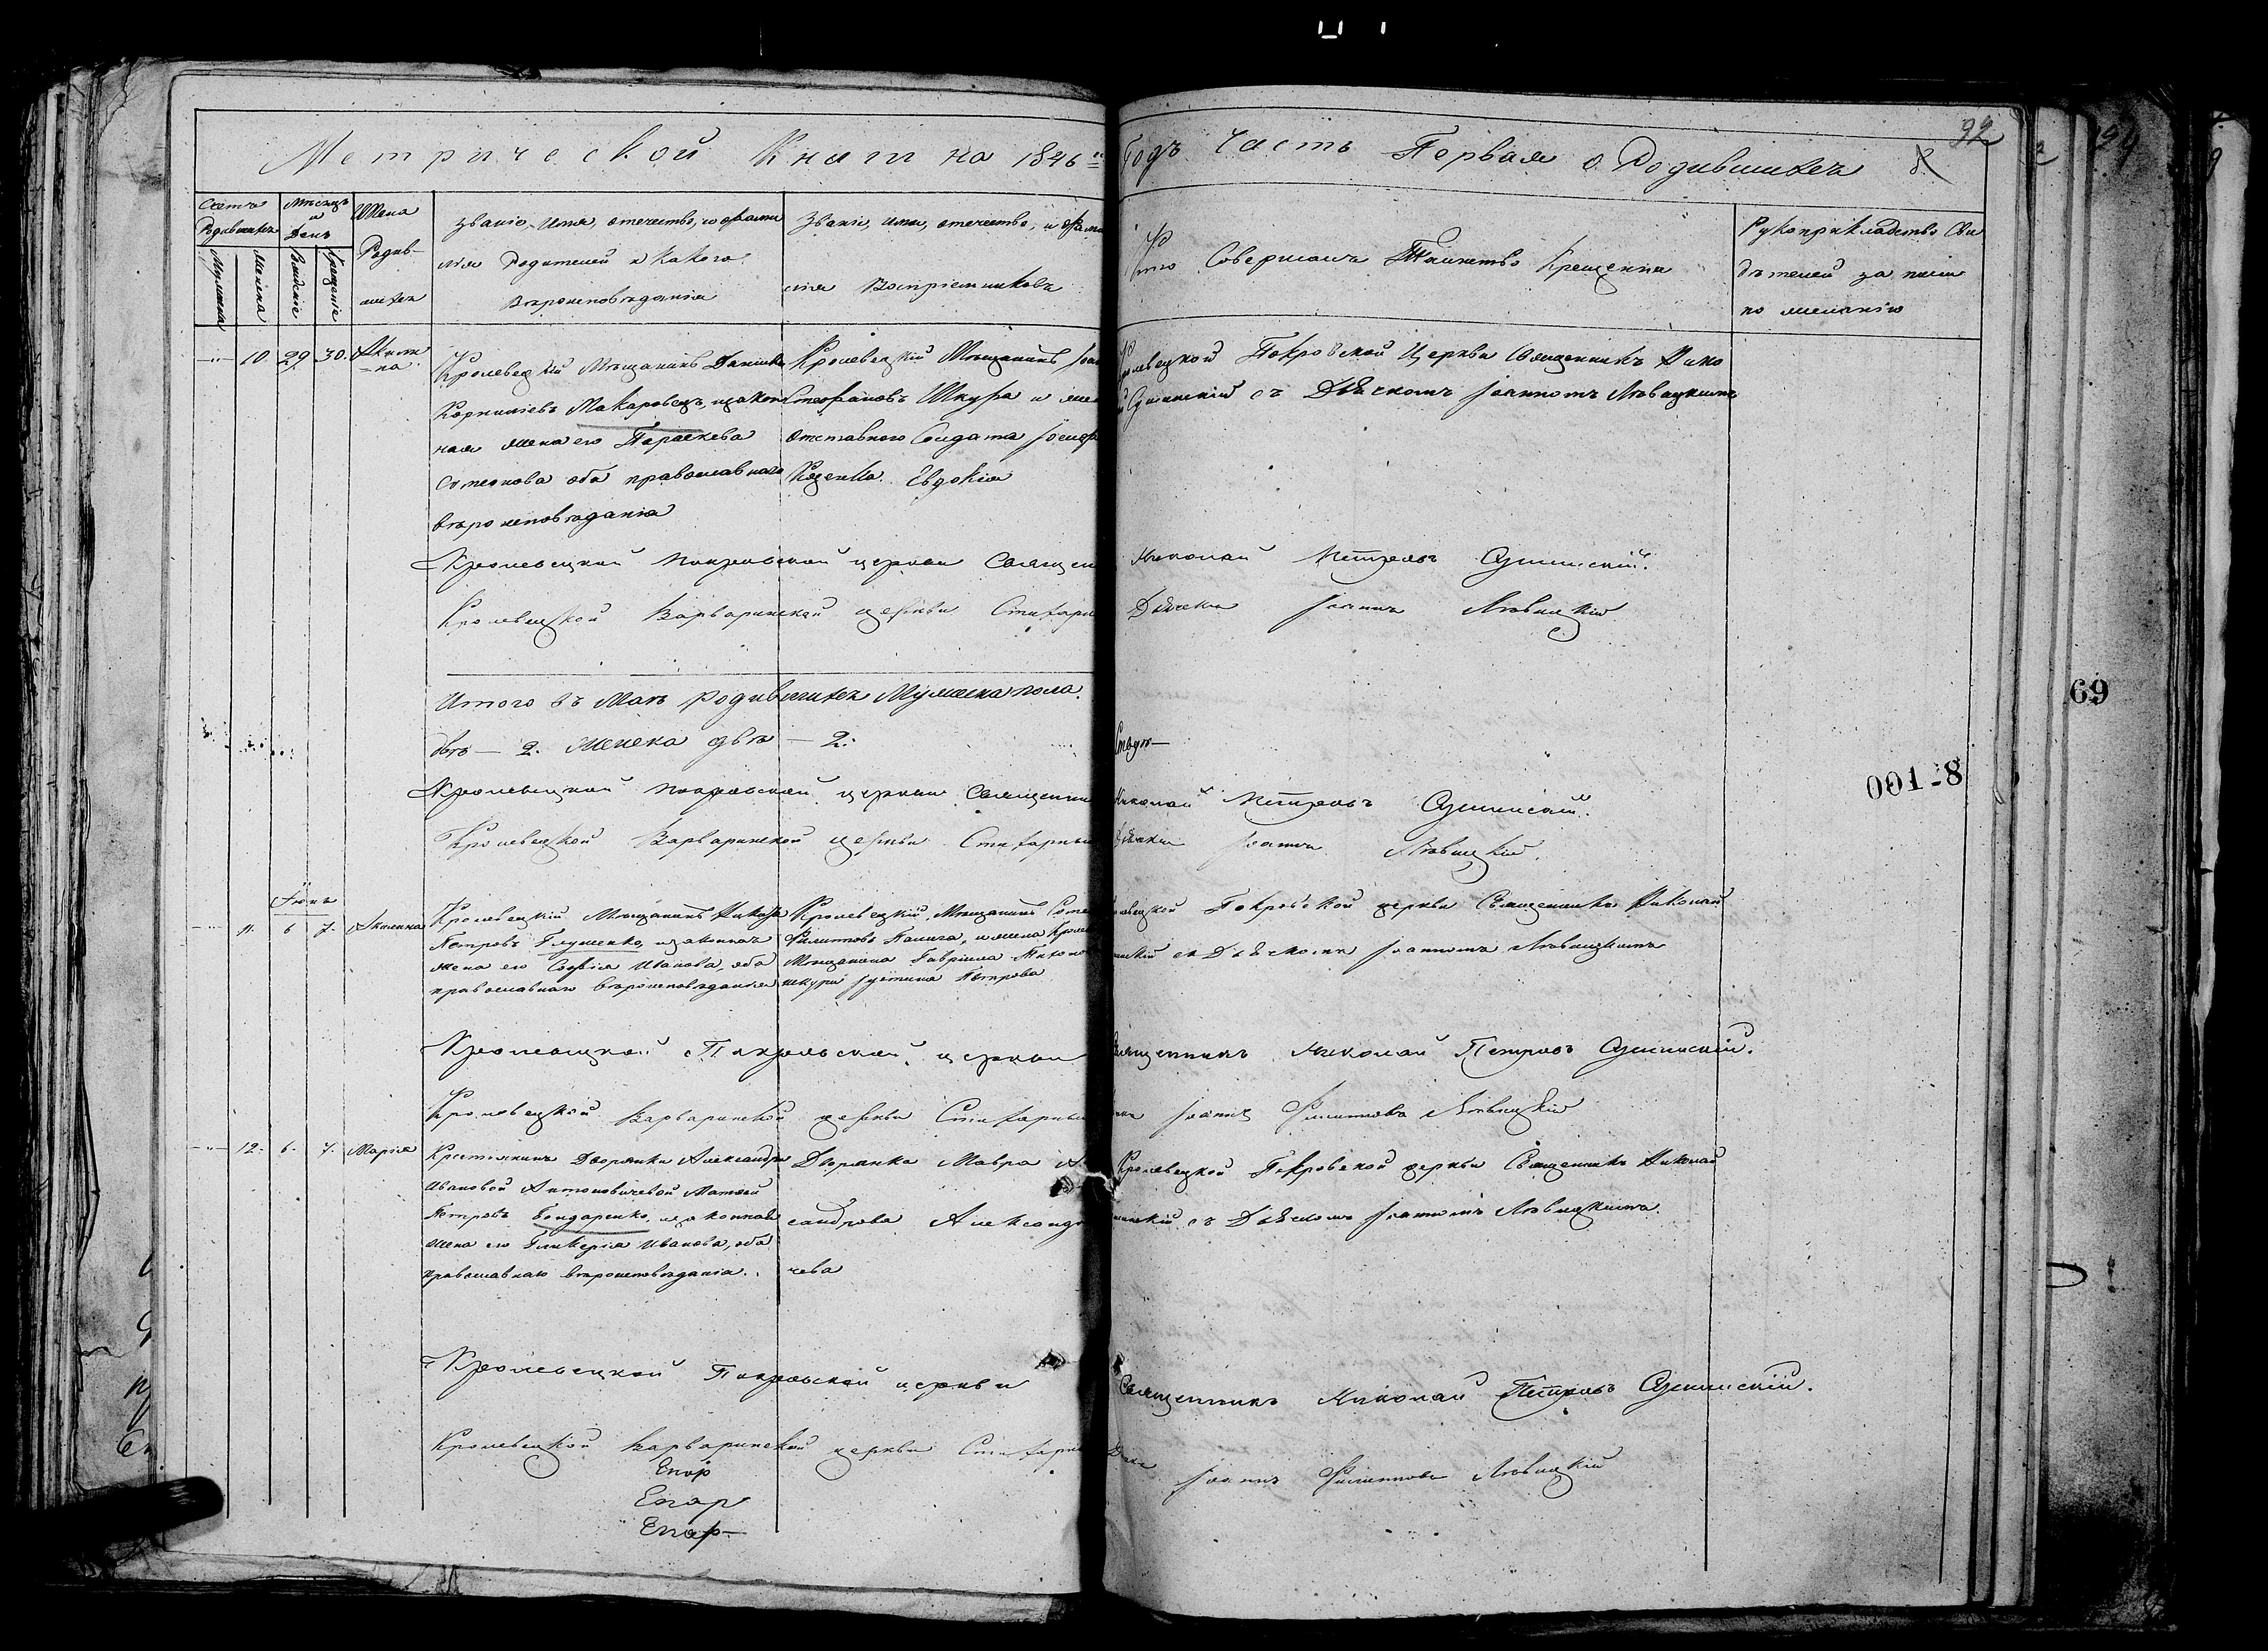 Метрической Книги на 1846й
Годъ Часть Первая о Родившихся
92
8.
Счетъ Родившихся
Мужеска
Женска
Мѣсяцъ и День
Рожденіе
Крещенія
Имена
Родив-
шихся
Званіе, Имя, отечество, и фами
лія Родителей и Какого
Вѣроисповѣданія
Званіе, имя, отечество, и фами
лія Воспріемниковъ
Кто Совершалъ Таинство Крещенія
Рукоприкладство Сви
дѣтелей за писи
по желанію
10. 29. 30. Акили
на
Кролевецкій Мѣщанинъ Даніилъ
Корниліевъ Макаровецъ, и закон
ная жена его Параскева
Симеонова оба православнаго
вѣроисповѣданія
Кролевецкій Мѣщанинъ
Стефановъ Шкура и жен
отставного Солдата Іосиф
Евдокія
Кролевецкой Покровской Церкви Священникъ Нико
съ Дьячкомъ Іоанномъ Левицкимъ
Кролевецкой Покровской церкви Священ Николай Петровъ
Кролевецкой Варваринской церкви Стихарн Дьячекъ Іоаннъ Левицкій
Итого въ Маѣ родившихся Мужеска пола.
двѣ — 2. Женска двѣ — 2.
Кролевецкой Покровской церкви Священни Николай Петровъ
Кролевецкой Варваринской церкви Стихарный Дьячекъ Іоаннъ Левицкій.
Іюнь
11. 6 7. Акилина
Кролевецкій Мѣщанинъ Никола
Петровъ Глущенко, и законная
жена его Софія Иванова, оба
православнаго вѣроисповѣданія
Кролевецкій Мѣщанинъ
Филиповъ и жена Крол
Мѣщанина Гавріила
Шкуры Іустина Петрова
Покровской церкви Священникъ Николай
съ Дьячкомъ Іоанномъ Левицкимъ
Кролевецкой Покровской церкви Священникъ Николай Петровъ
Кролевецкой Варваринской церкви Стихарный Іоаннъ Филиповъ Левицкій
12. 6. 7. Марія
Крестьянинъ Дворянки Александры
Ивановой Антоновичевой Матвей
Петровъ Бондаренко, и законная
жена его Гликерія Иванова, оба
православнаго вѣроисповѣданія.
Дворянка Мавра А
сандрова Александро
чева
Кролевецкой Покровской церкви Священникъ Николай
съ Дьячкомъ Іоанномъ Левицкимъ.
Кролевецкой Покровской церкви Священникъ Николай Петровъ
Кролевецкой Варваринской церкви Стихарный Іоаннъ Филиповъ Левицкій
Епар
Епар
Епар
69
001-8